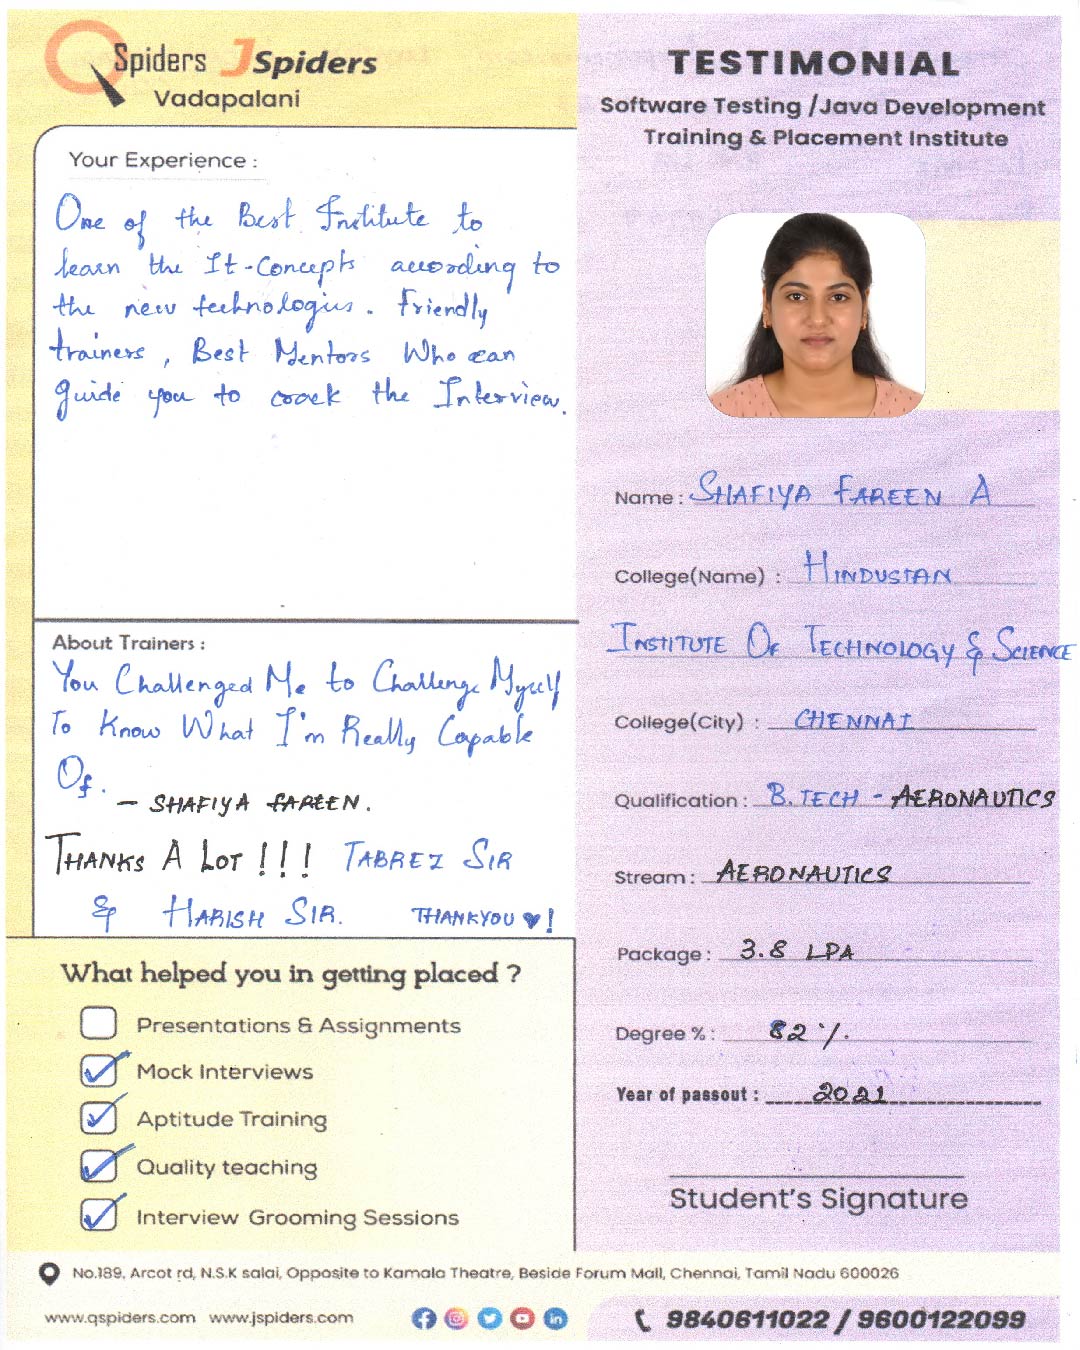 QSpiders JSpiders
Vadapalani
Your Experience :
One of the Best Institute to
learn the It-Concepts according to
the new technologies. Friendly
trainers, Best Mentors Who can
guide you to crack the Interview.
About Trainers :
You Challenged Me to Challenge Myself
To Know What I'm Really Capable
Of.
- SHAFIYA FAREEN.
THANKS A LOT !!! TABREZ SIR
& HARISH SIR. THANKYOU ♥!
What helped you in getting placed ?
Presentations & Assignments
Mock Interviews
Aptitude Training
Quality teaching
Interview Grooming Sessions
TESTIMONIAL
Software Testing /Java Development
Training & Placement Institute
Name : SHAFIYA FAREEN A
College(Name) : HINDUSTAN
INSTITUTE OF TECHNOLOGY & SCIENCE
College(City) : CHENNAI
Qualification : B.TECH - AERONAUTICS
Stream : AERONAUTICS
Package : 3.8 LPA
Degree % : 82 %.
Year of passout : 2021
Student's Signature
No.189, Arcot rd, N.S.K salai, Opposite to Kamala Theatre, Beside Forum Mall, Chennai, Tamil Nadu 600026
www.qspiders.com www.jspiders.com
9840611022 / 9600122099